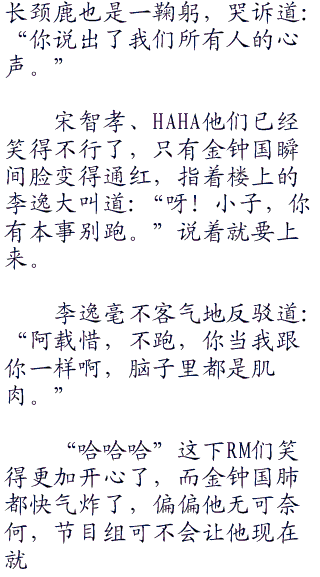 长颈鹿也是一鞠躬，哭诉道：
“你说出了我们所有人的心
声。”
宋智孝、HAHA他们已经
笑得不行了，只有金钟国瞬
间脸变得通红，指着楼上的
李逸大叫道：“呀！小子，你
有本事别跑。”说着就要上
来。
李逸毫不客气地反驳道：
“阿载惜，不跑，你当我跟
你一样啊，脑子里都是肌
肉。”
“哈哈哈”这下RM们笑
得更加开心了，而金钟国肺
都快气炸了，偏偏他无可奈
何，节目组可不会让他现在
就